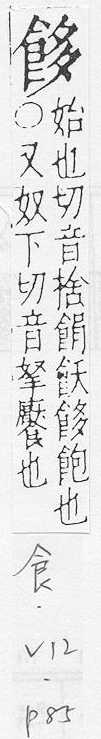 餯
始也切音捨餇飫餯飽也
○又奴下切音拏饜也
食
.
V12
.
P85